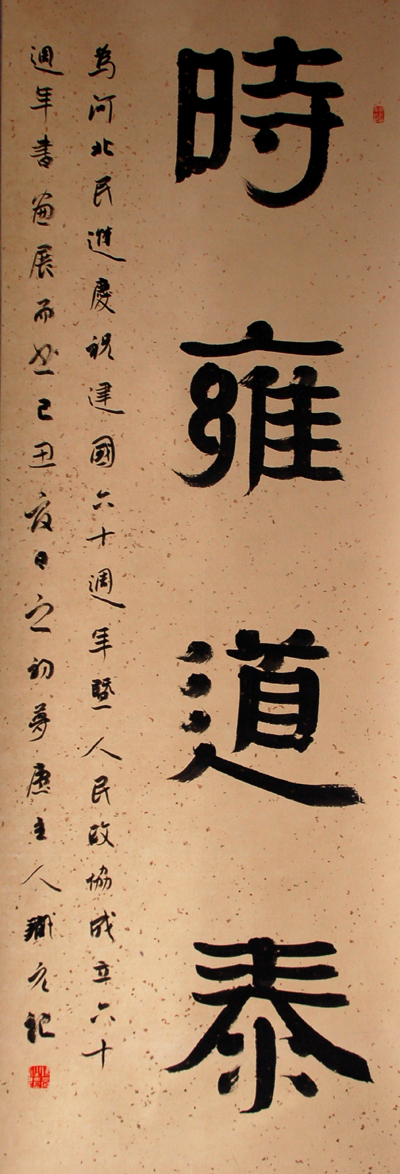 時雍道泰
為河北民進慶祝建國六十週年暨人民政協成立六十
週年書畫展而書己丑夏日之初夢唐主人記